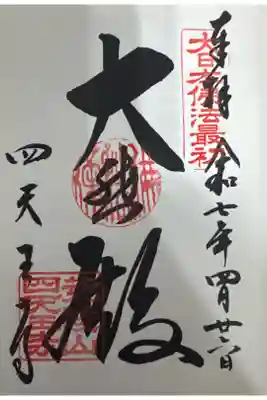 大日本佛法最初
奉拝 令和七年四月廿六日
大悲殿
四天王寺
荒陵山
四天王寺